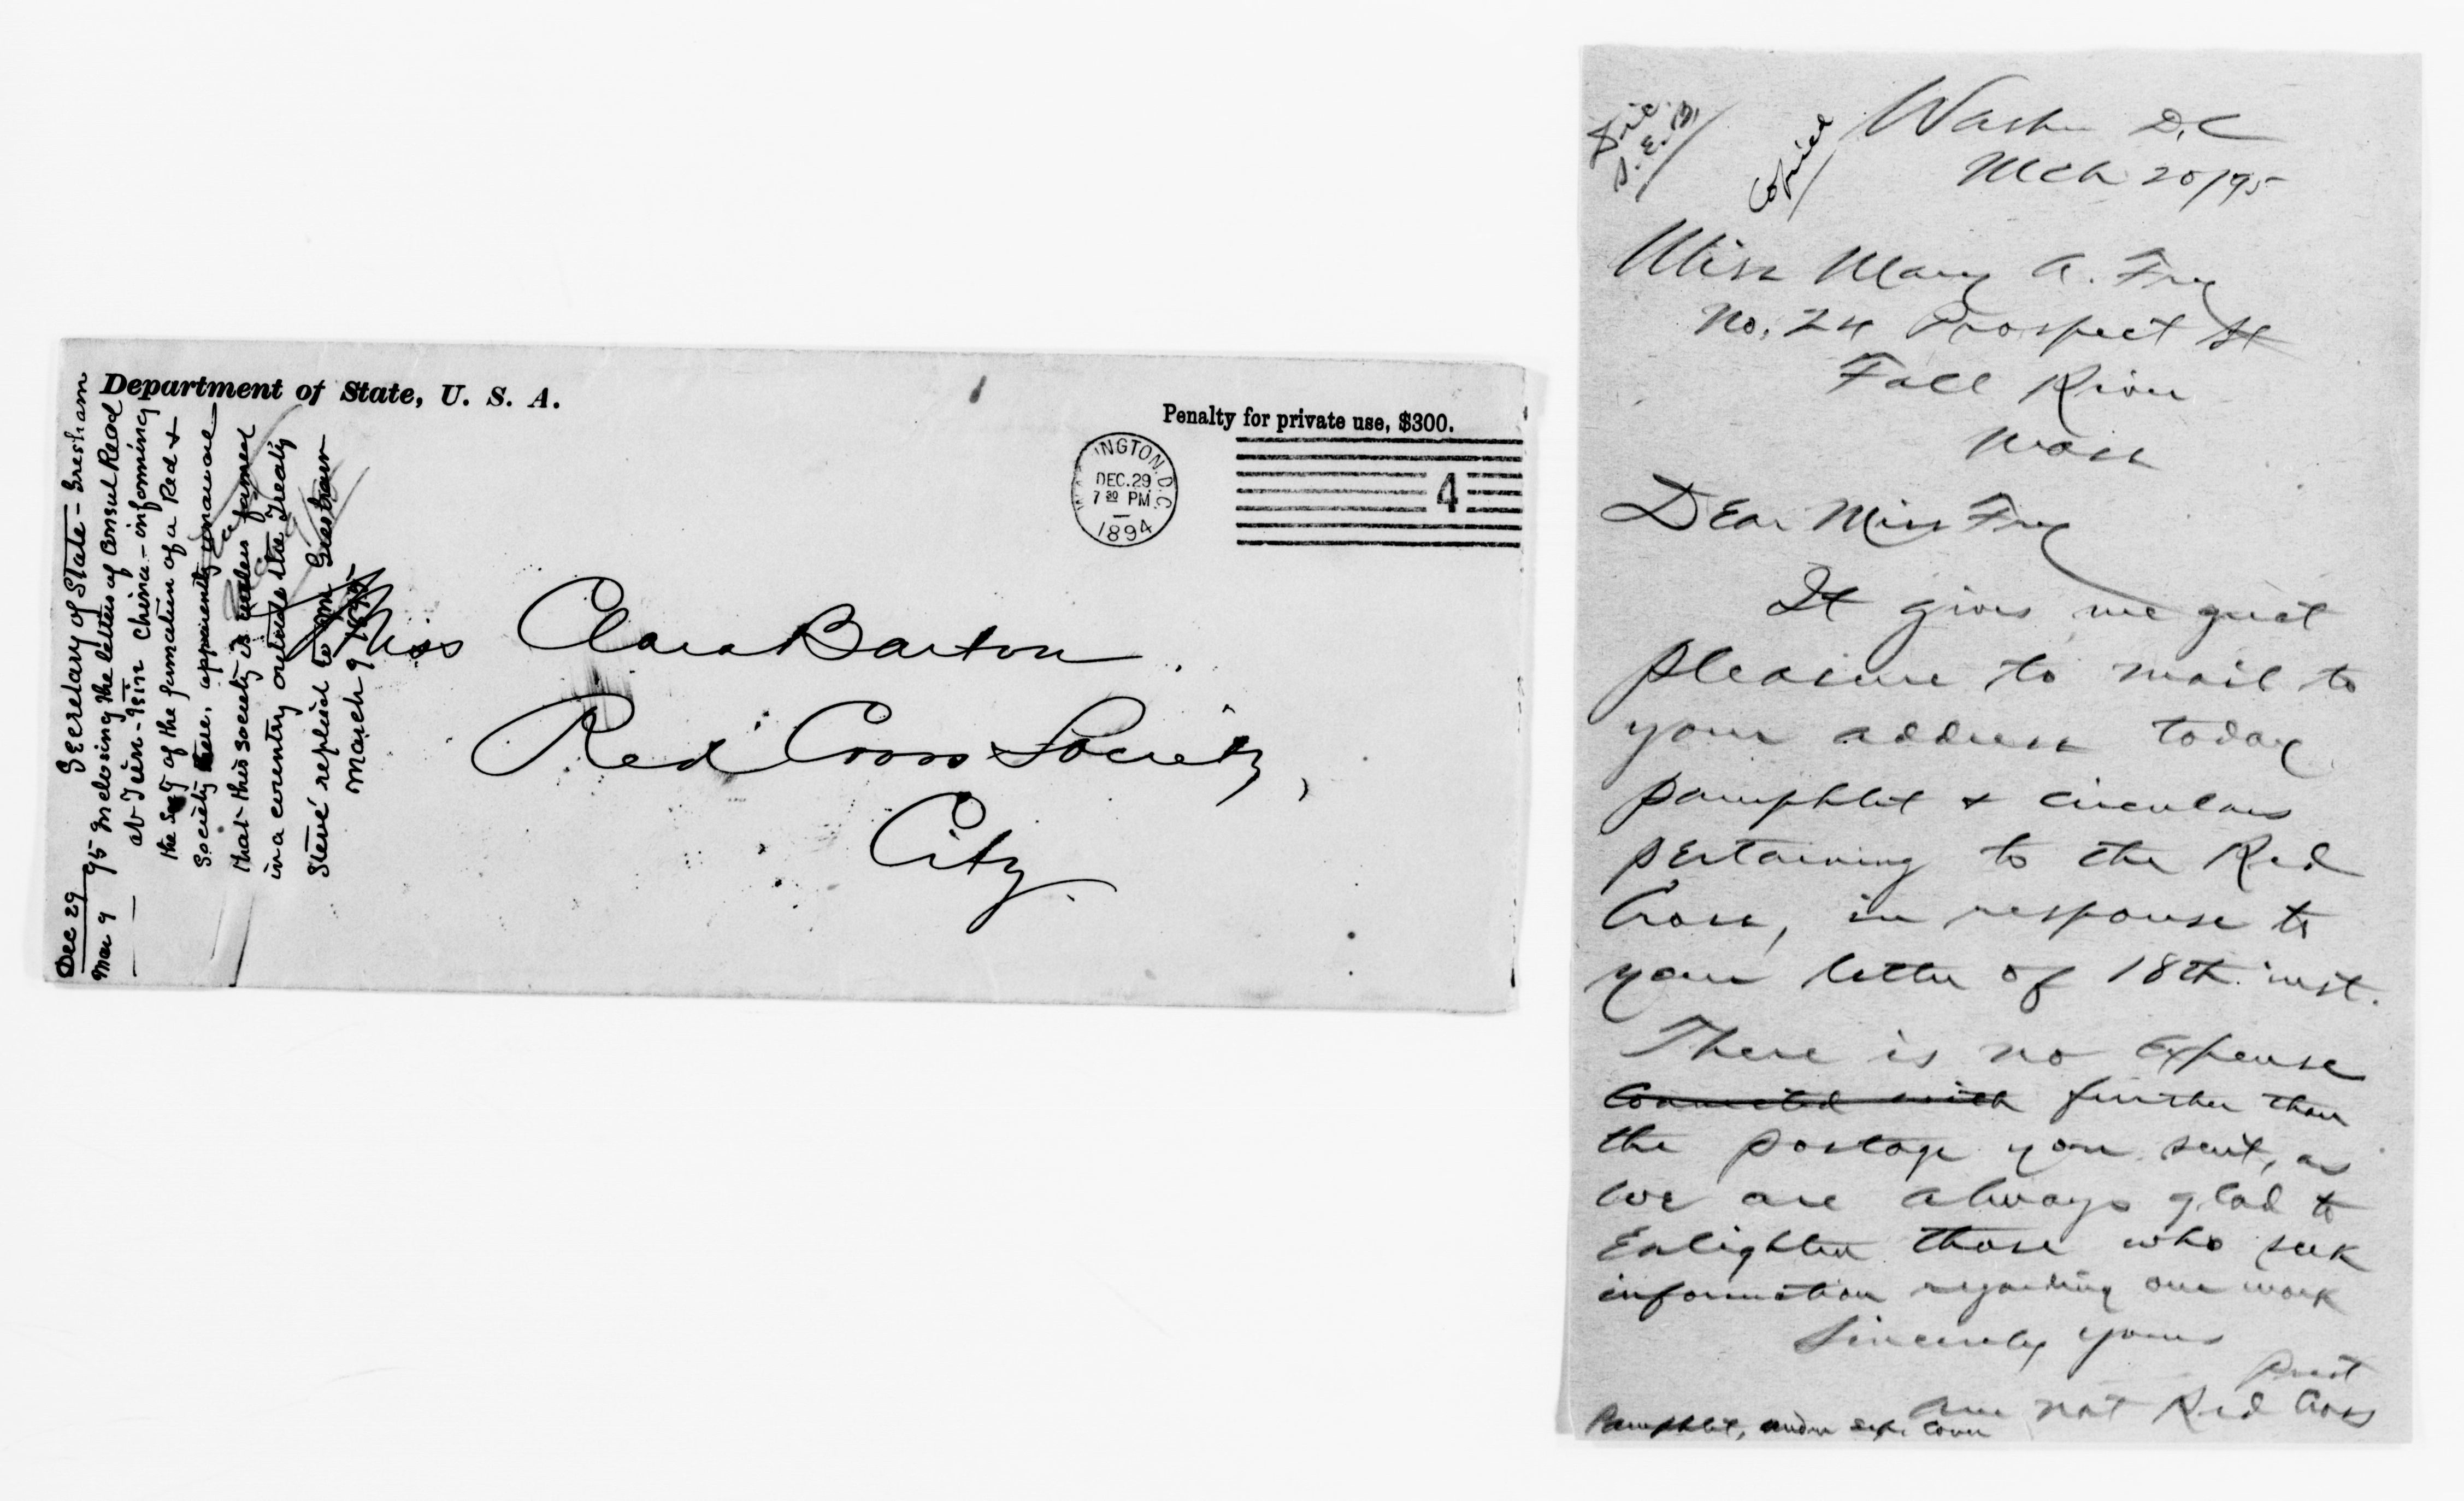 Department of State, U. S. A.
Penalty for private use, $300.
WASHINGTON, D.C.
DEC. 29
7 30 PM
1894
4
Miss Clara Barton.
Red Cross Society,
City.
Dec 29 Secretary of State - Gresham
Mar 9 95 Inclosing the letters of Consul Read
at Tien-Tsin China - informing
the Secy of the formation of a Red +
Society there, apparently unaware
that this society is formed
in a country outside the Treaty
Steve' replied to Mr Gresham
March 9 1895
Dic
S. E. B.
Copied
Washn D.C
Mch 20/95
Miss Mary A. Fry
No. 24 Prospect St
Fall River
Mass
Dear Miss Fry
It gives me great
pleasure to mail to
your address today
pamphlet & circulars
pertaining to the Red
Cross, in response to
your letter of 18th inst.
There is no expense
connected with further than
the postage you sent, as
we are always glad to
Enlighten those who seek
information regarding our work
Sincerely yours
Prest
Am Nat Red Cross
Pamphlet, under sep. cover